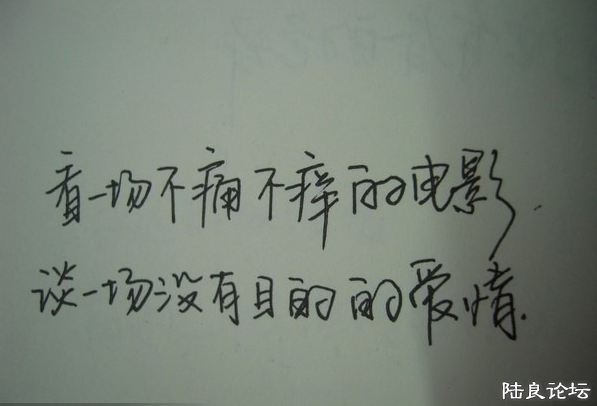 看一场不痛不痒的电影.
谈一场没有目的的爱情.
陆良论坛